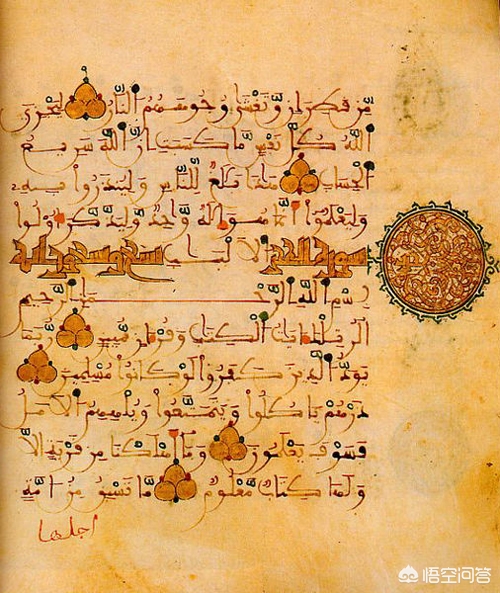 مِّن قَطِرَانٍ وَتَغْشَى وُجُوهَهُمُ النَّارُ لِيَجْزِيَ
اللَّهُ كُلَّ نَفْسٍ مَّا كَسَبَتْ إِنَّ اللَّهَ سَرِيعُ
الْحِسَابِ هَذَا بَلَغٌ لِّلنَّاسِ وَلِيُنذَرُوا بِهِ
وَلِيَعْلَمُوا أَنَّمَا هُوَ إِلَهٌ وَاحِدٌ وَلِيَذَّكَّرَ أُولُوا
سورة الحجر الالباب تسع وتسعون اية
بِسْمِ اللَّهِ الرَّحْمَنِ الرَّحِيمِ
الر تِلْكَ ءَايَتُ الْكِتَبِ وَقُرْءَانٍ مُّبِينٍ رُّبَمَا
يَوَدُّ الَّذِينَ كَفَرُوا لَوْ كَانُوا مُسْلِمِينَ
ذَرْهُمْ يَاكُلُوا وَيَتَمَتَّعُوا وَيُلْهِهِمُ الْأَمَلُ
فَسَوْفَ يَعْلَمُونَ وَمَا أَهْلَكْنَا مِن قَرْيَةٍ إِلَّا
وَلَهَا كِتَابٌ مَّعْلُومٌ مَّا تَسْبِقُ مِنْ أُمَّةٍ
اجلها
悟空问答